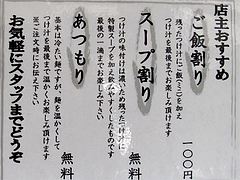 店主おすすめ
ご飯割り
一〇〇円
残ったつけ汁に、ご飯(ミニ)を加えて
つけ汁を最後までお楽しみ頂けます
スープ割り
無料
つけ汁の味付けは濃いため残ったつけ汁に
特製スープを加え飲みやすくしたものです
最後の一滴までお楽しみ下さい
あつもり
無料
基本は冷たい麺ですが、麺を温かくして
つけ汁を最後まで温かくお楽しみ頂けます
※ご注文時にお伝え下さい
お気軽にスタッフまでどうぞ